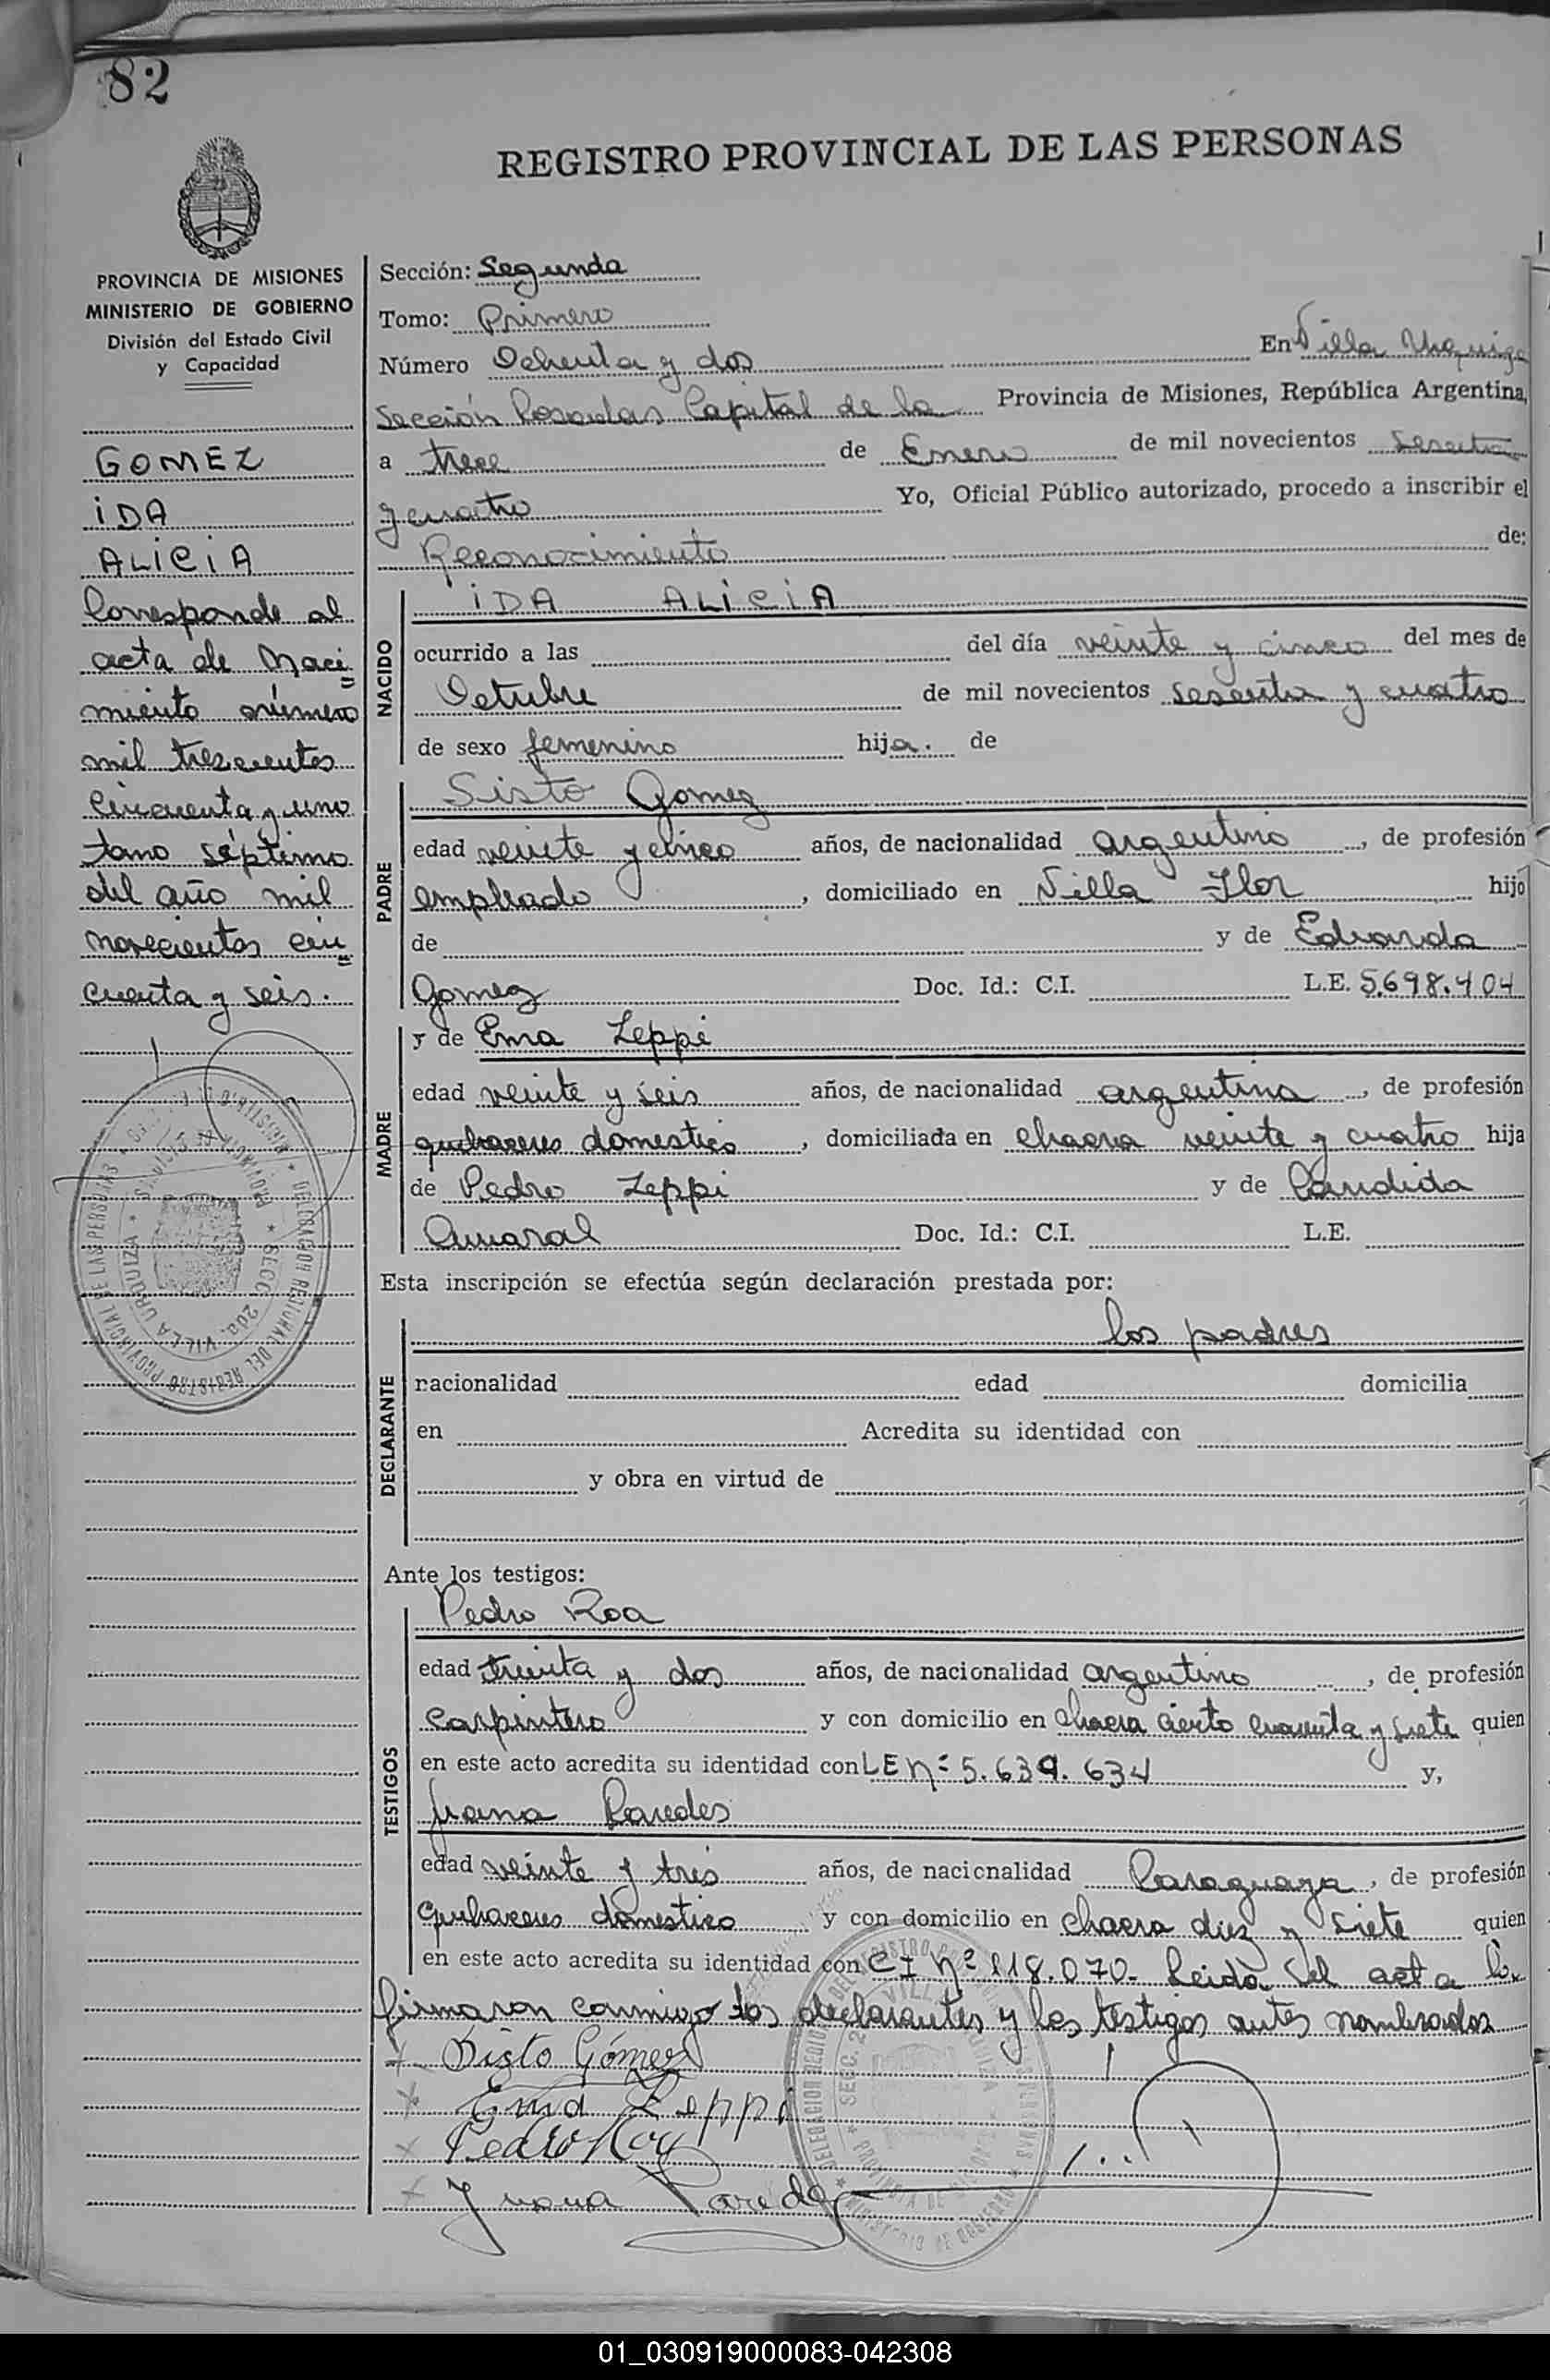 82
REGISTRO PROVINCIAL DE LAS PERSONAS
PROVINCIA DE MISIONES
MINISTERIO DE GOBIERNO
División del Estado Civil
y Capacidad
GOMEZ
IDA
ALICIA
Corresponde al
acta de Naci
miento número
mil trescientos
cincuenta y uno
tomo séptimo
del año mil
novecientos cin
cuenta y seis.
Sección: Segunda
Tomo: Primero
Número Ochenta y dos En Villa Urquiza
Sección Posadas Capital de la Provincia de Misiones, República Argentina,
a trece de Enero de mil novecientos sesenta
y cuatro Yo, Oficial Público autorizado, procedo a inscribir el
Reconocimiento de:
NACIDO
IDA ALICIA
ocurrido a las del día veinte y cinco del mes de
Octubre de mil novecientos sesenta y cuatro
de sexo femenino hija. de
PADRE
Sisto Gomez
edad veinte y cinco años, de nacionalidad argentino, de profesión
empleado, domiciliado en Villa Flor hijo
de y de Eduarda
Gomez Doc. Id.: C.I. L.E. 5.698.404
MADRE
y de Ema Zeppi
edad veinte y seis años, de nacionalidad argentina, de profesión
quehaceres domestico, domiciliada en chacra veinte y cuatro hija
de Pedro Zeppi y de Candida
Amaral Doc. Id.: C.I. L.E.
Esta inscripción se efectúa según declaración prestada por:
DECLARANTE
los padres
racionalidad edad domicilia
en Acredita su identidad con
y obra en virtud de
Ante los testigos:
TESTIGOS
Pedro Roa
edad treinta y dos años, de nacionalidad argentino, de profesión
carpintero y con domicilio en chacra ciento cuarenta y siete quien
en este acto acredita su identidad con LE nº 5.639.634 y,
Juana Paredes
edad veinte y tres años, de nacionalidad Paraguaya, de profesión
quehaceres domestico y con domicilio en chacra diez y siete quien
en este acto acredita su identidad con CI nº 118.070. Leida el acta la
firmaron conmigo los declarantes y los testigos antes nombrados
Sisto Gómez
Ema Zeppi
Pedro Roa
Juana Paredes
DELEGACION REGIONAL DEL REGISTRO PROVINCIAL DE LAS PERSONAS
SECC. 2da. VILLA URQUIZA
PROVINCIA DE MISIONES
MINISTERIO DE GOBIERNO
01_030919000083-042308